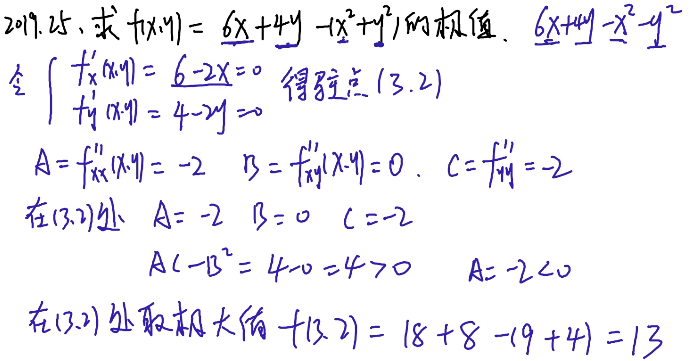 2019.25、求 f(x,y) = 6x+4y -(x²+y²)的极值. 6x+4y-x²-y²
令 { f'x(x,y) = 6-2x=0 得驻点(3.2)
f'y(x,y) = 4-2y=0
A=f''xx(x,y)=-2 B=f''xy(x,y)=0. C=f''yy=-2
在(3.2)处 A=-2 B=0 C=-2
AC-B²=4-0=4>0 A=-2<0
在(3.2)处取极大值 f(3.2)=18+8-(9+4)=13